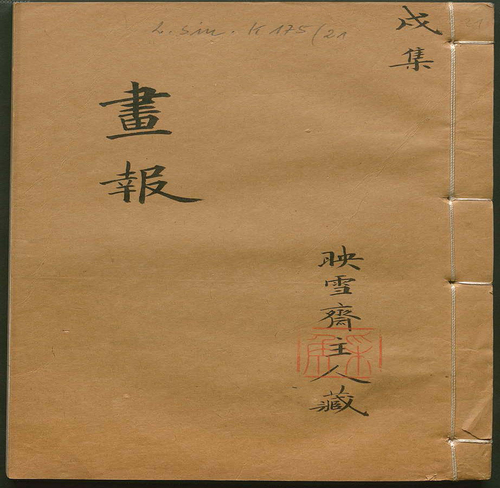 L. sin. K 175/21
戌集
畫報
映雪齋主人藏